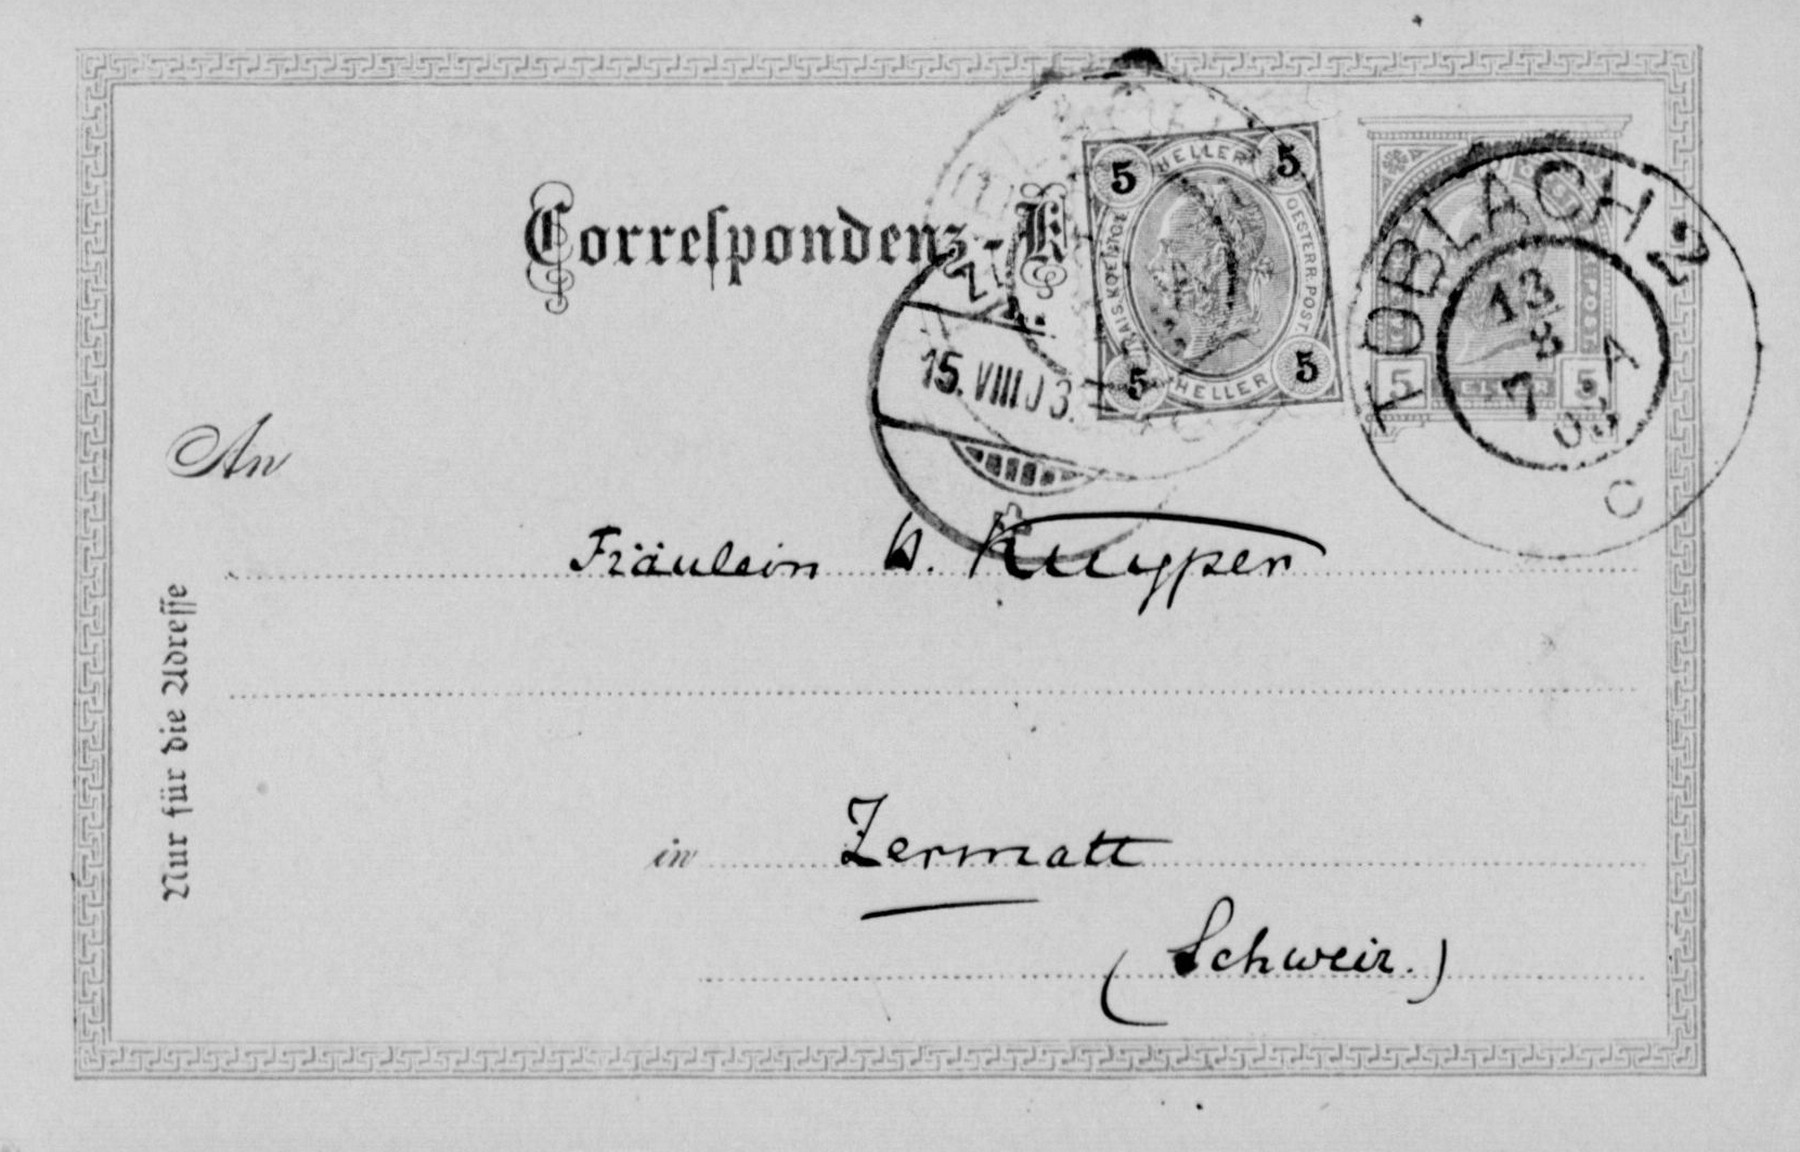 Correspondenz-K
5 HELLER 5
KAIS. KOENIGL. OESTERR. POST.
5 HELLER 5
5 5
TOBLACH 2
13
8
7 A
03
15. VIII 03.
An
Fräulein H. Kuyper
in Zermatt
(Schweiz.)
Nur für die Adresse